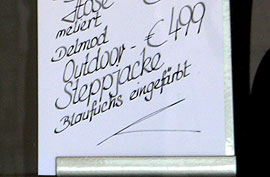 Hose €
meliert
Delmod
Outdoor- € 499
Steppjacke
Blaufuchs eingefärbt